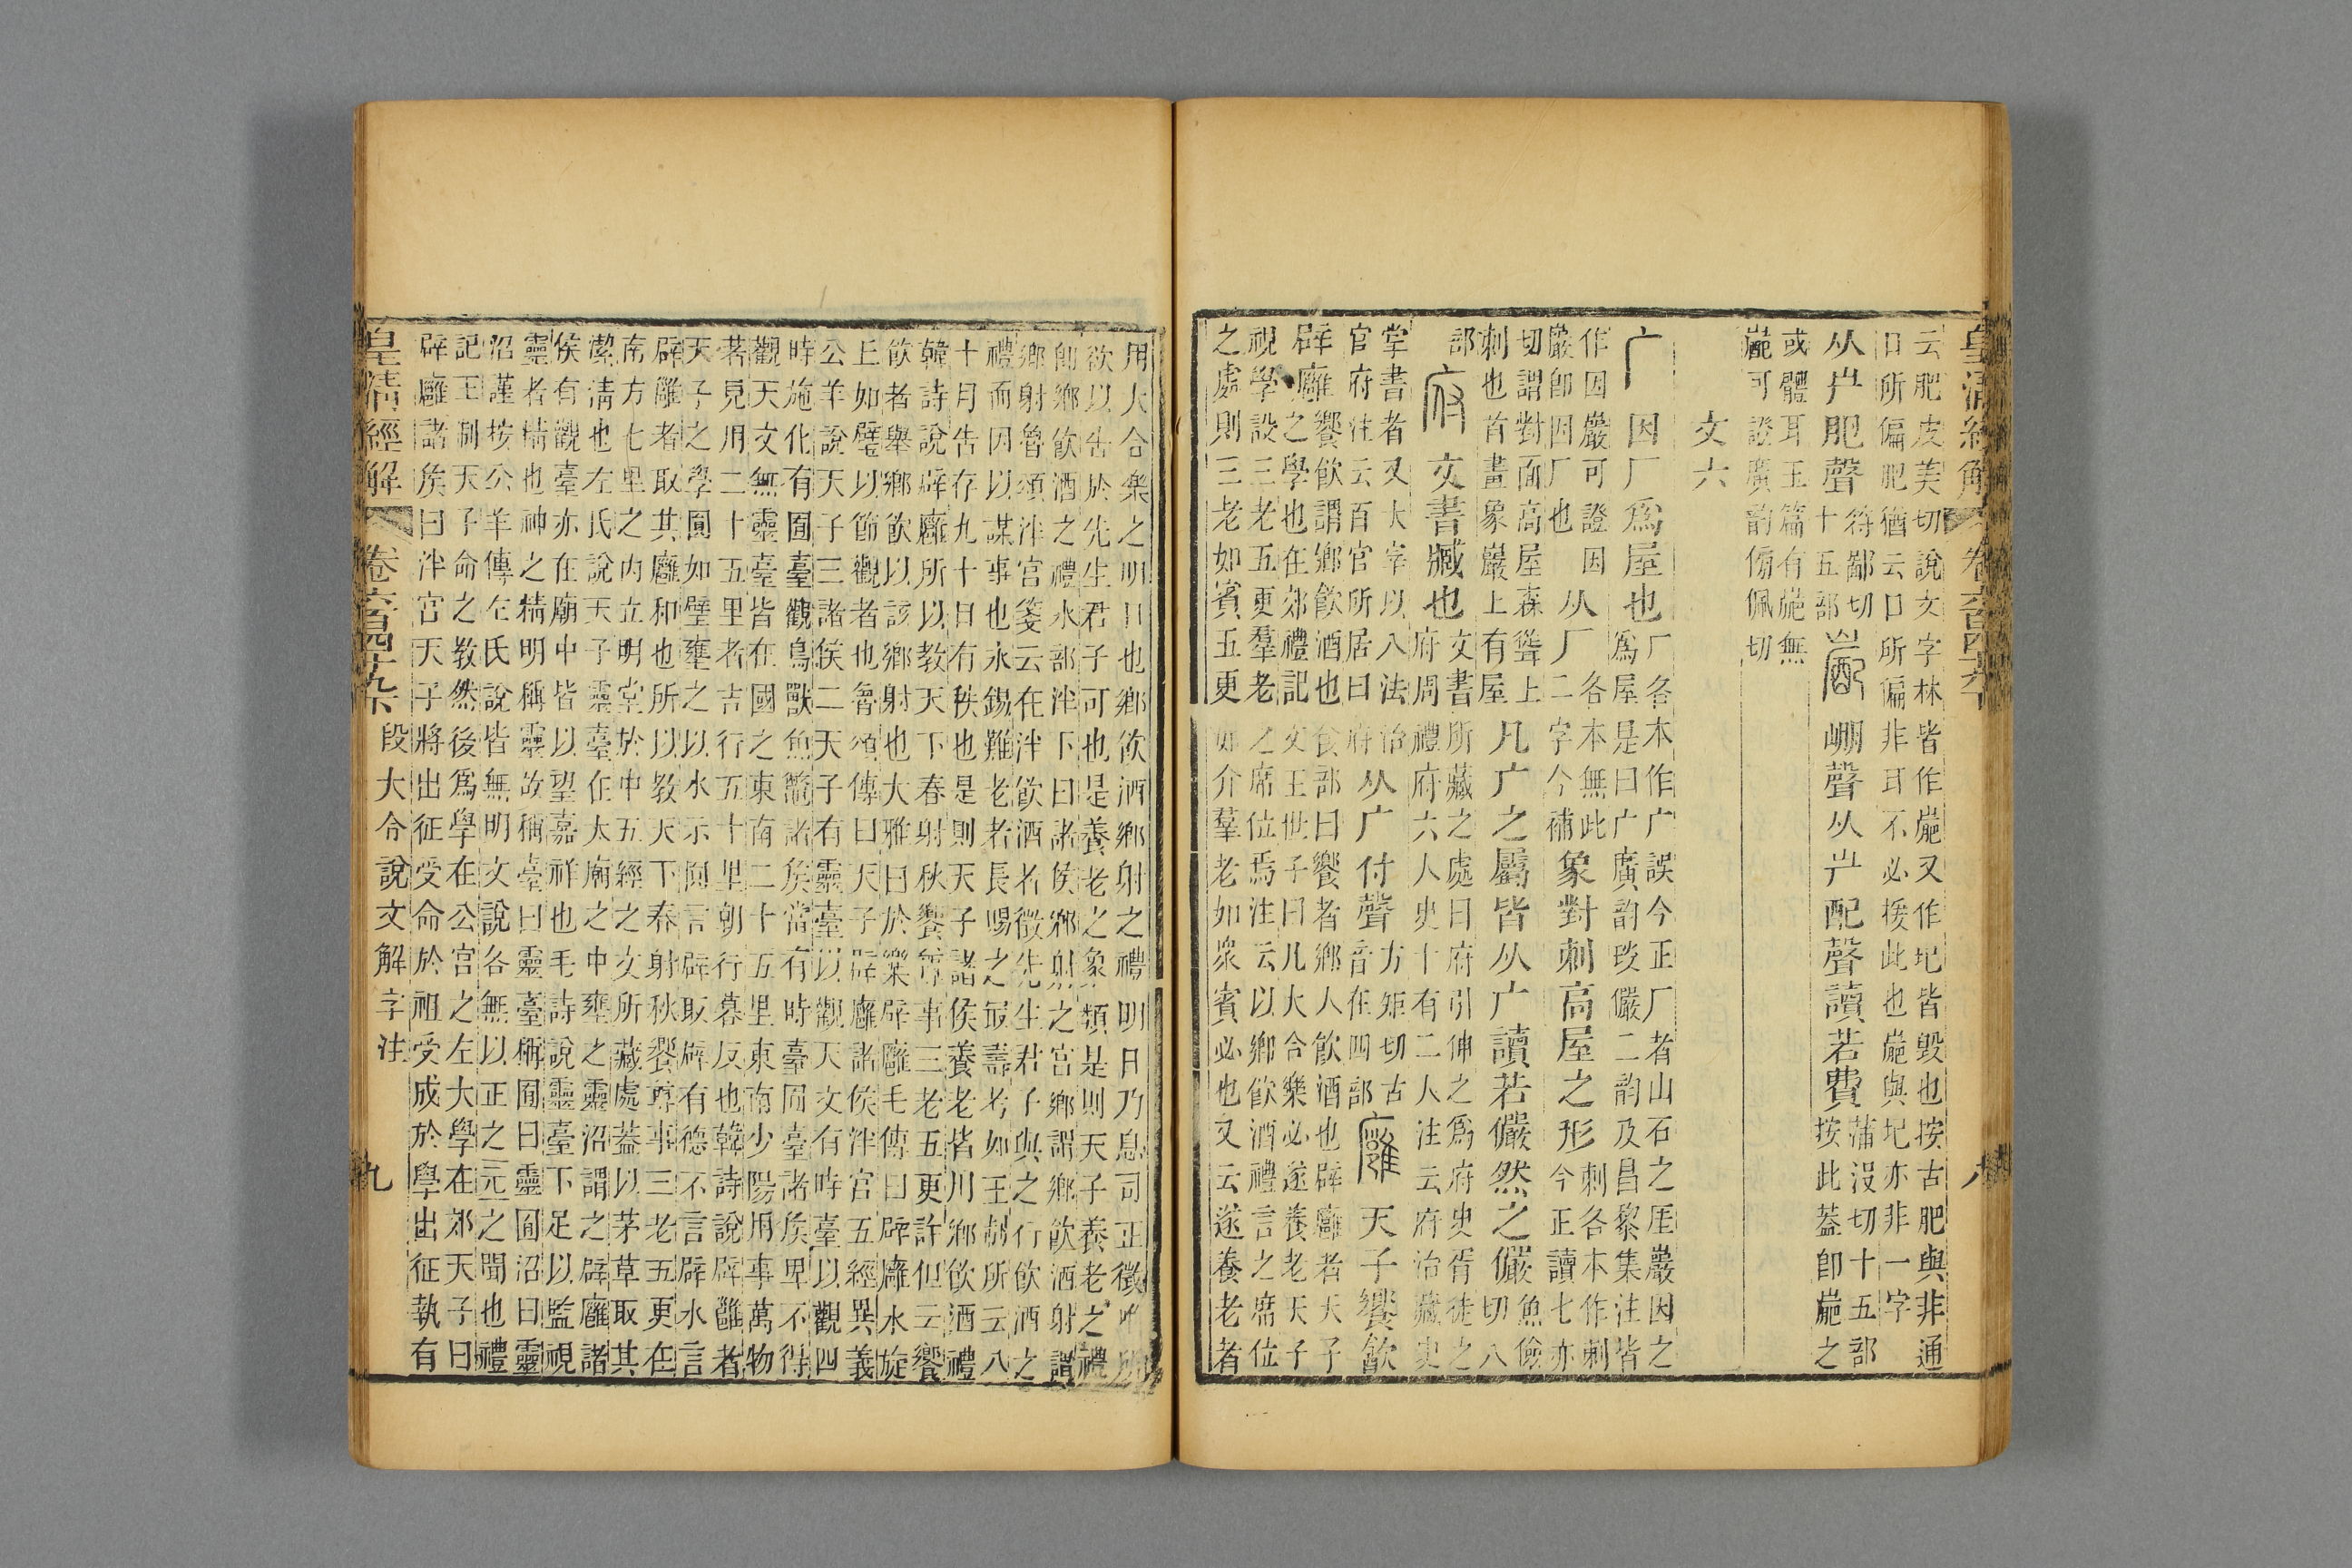 皇清經解 卷六百四十九下 八
云肥皮美切說文字林皆作嶏又作圮皆毀也按古肥與非通
口所偏肥猶云口所偏非耳不必援此也嶏與圮亦非一字
从屵肥聲
符鄙切
十五部
嶏
崩聲从屵配聲讀若費
蒲沒切十五部
按此葢卽嶏之
或體耳玉篇有嶏無
嶏可證廣韵傍佩切
文六
广
因厂爲屋也
厂各本作广誤今正厂者山石之厓巖因之
爲屋是曰广廣韵琰儼二韵及昌黎集注皆
作因巖可證因
巖卽因厂也
从厂
各本無此
二字今補
象對刺高屋之形
刺各本作剌
今正讀七亦
切謂對面高屋森聳上
刺也首畫象巖上有屋
凡广之屬皆从广讀若儼然之儼
魚儉
切八
部
府
文書臧也
文書所藏之處曰府引伸之爲府史胥徒之
府周禮府六人史十有二人注云府治藏史
掌書者又大宰以八法治
官府注云百官所居曰府
从广付聲
方矩切古
音在四部
廱
天子饗飮
辟廱
饗飮謂鄉飮酒也食部曰饗者鄉人飮酒也辟廱者天子
之學也在郊禮記文王世子曰凡大合樂必遂養老天子
視學設三老五更羣老之席位焉注云以鄉飮酒禮言之席位
之處則三老如賓五更如介羣老如衆賓必也又云遂養老者
用大合樂之明日也鄉飮酒鄉射之禮明日乃息司正徵唯所
欲以告於先生君子可也是養老之象類是則天子養老之禮
卽鄉飮酒之禮水部泮下曰諸侯鄉射之宮鄉謂鄉飮酒射謂
鄉射魯頌泮宮箋云在泮飮酒者徵先生君子與之行飮酒之
禮而因以謀事也永錫難老者長賜之最壽考如王制所云八
十月告存九十日有秩也是則天子諸侯養老皆用鄉飮酒禮
韓詩說辟廱所以教天下春射秋饗尊事三老五更許但云饗
飮者舉鄉飮以該鄉射也大雅曰於樂辟廱毛傳曰辟廱水旋
上如璧以節觀者也魯頌傳曰天子辟廱諸侯泮宮五經異義
公羊說天子三諸侯二天子有靈臺以觀天文有時臺以觀四
時施化有囿臺觀鳥獸魚鼈諸侯當有時臺囿臺諸侯卑不得
觀天文無靈臺皆在國之東南二十五里東南少陽用事萬物
著見用二十五里者吉行五十里朝行暮反也韓詩說辟雝者
天子之學圓如璧壅之以水示圓言辟取辟有德不言辟水言
辟雝者取其廱和也所以教天下春射秋饗尊事三老五更在
南方七里之內立明堂於中五經之文所藏處葢以茅草取其
潔清也左氏說天子靈臺在太廟之中壅之靈沼謂之辟廱諸
侯有觀臺亦在廟中皆以望嘉祥也毛詩說靈臺下足以監視
靈者精也神之精明稱靈故稱臺曰靈臺稱囿曰靈囿沼曰靈
沼謹按公羊傳左氏說皆無明文說各無以正之元之聞也禮
記王制天子命之教然後爲學在公宮之左大學在郊天子曰
辟廱諸侯曰泮宮天子將出征受命於祖受成於學出征執有
皇清經解 卷六百四十九下 段大令說文解字注 九